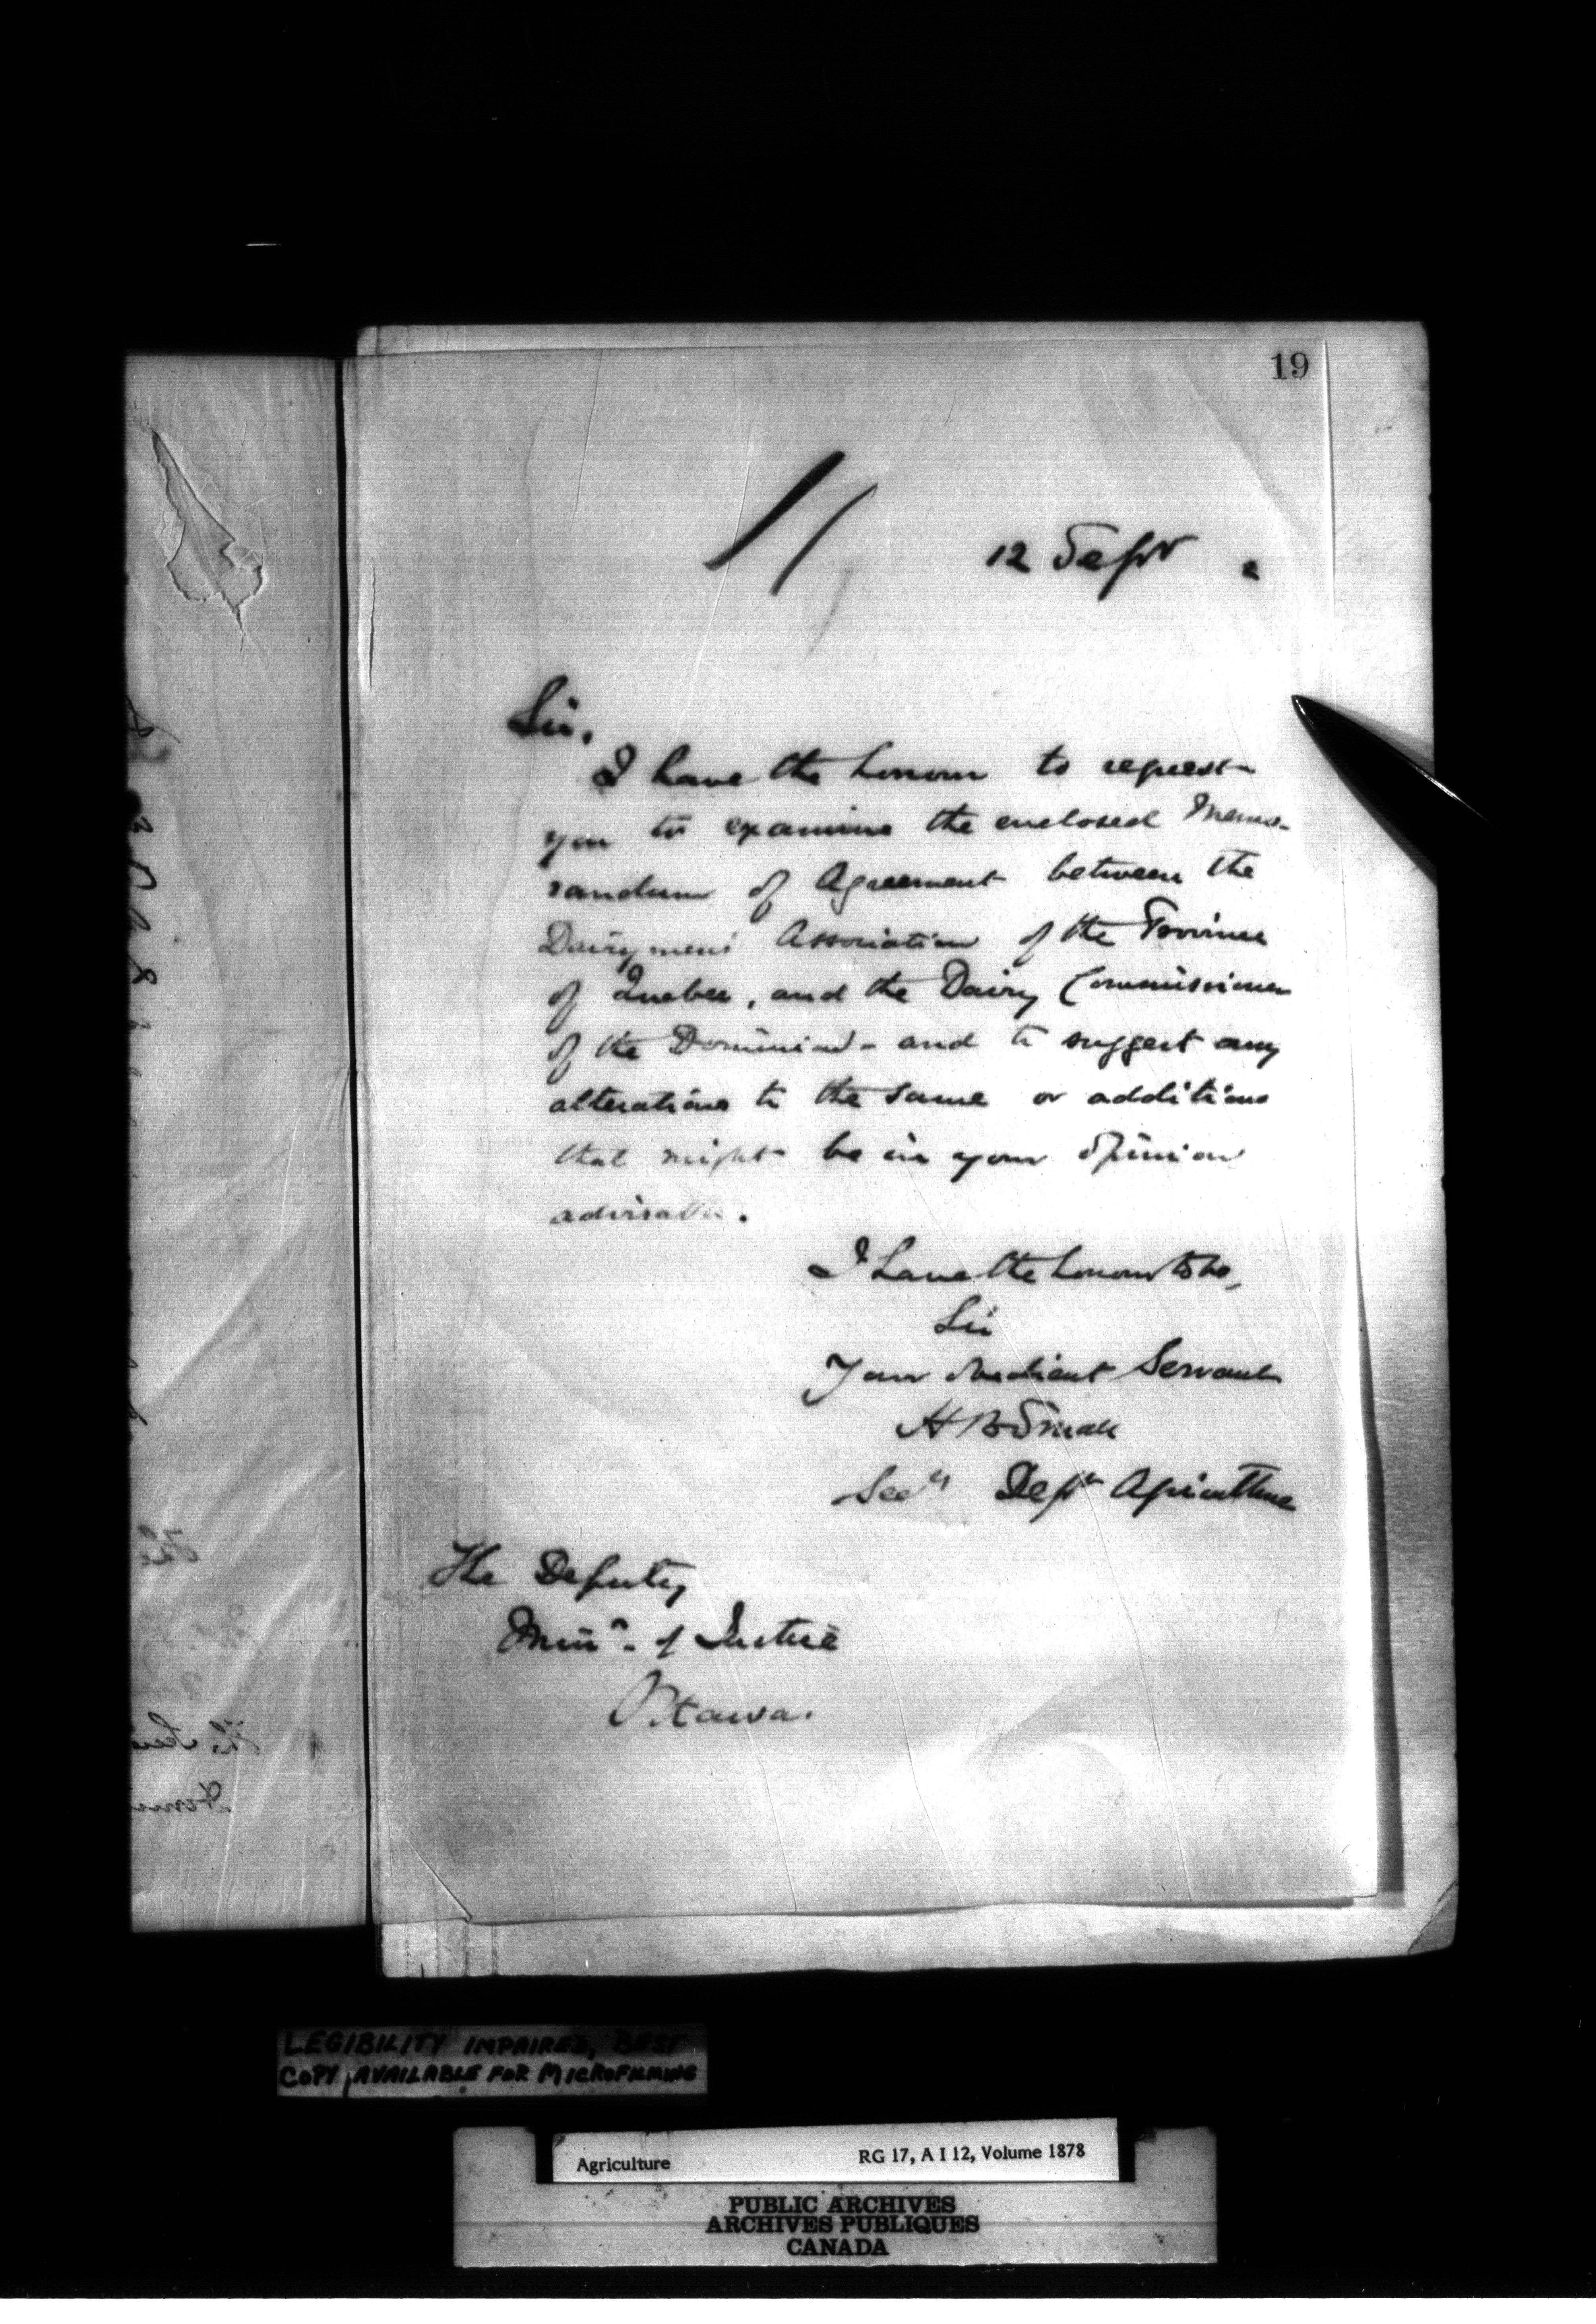 19
12 Sept 2
Sir,
I have the honour to request
you to examine the enclosed Memo-
randum of Agreement between the
Dairymens Association of the Province
of Quebec, and the Dairy Commissioner
of the Dominion - and to suggest any
alterations to the same or additions
that might be in your opinion
advisable.
I have the honour to be,
Sir
Your obedient Servant
H B Small
Secy Dept Agriculture
The Deputy
Minr. of Justice
Ottawa.
LEGIBILITY IMPAIRED, BEST
COPY AVAILABLE FOR MICROFILMING
Agriculture RG 17, A I 12, Volume 1878
PUBLIC ARCHIVES
ARCHIVES PUBLIQUES
CANADA